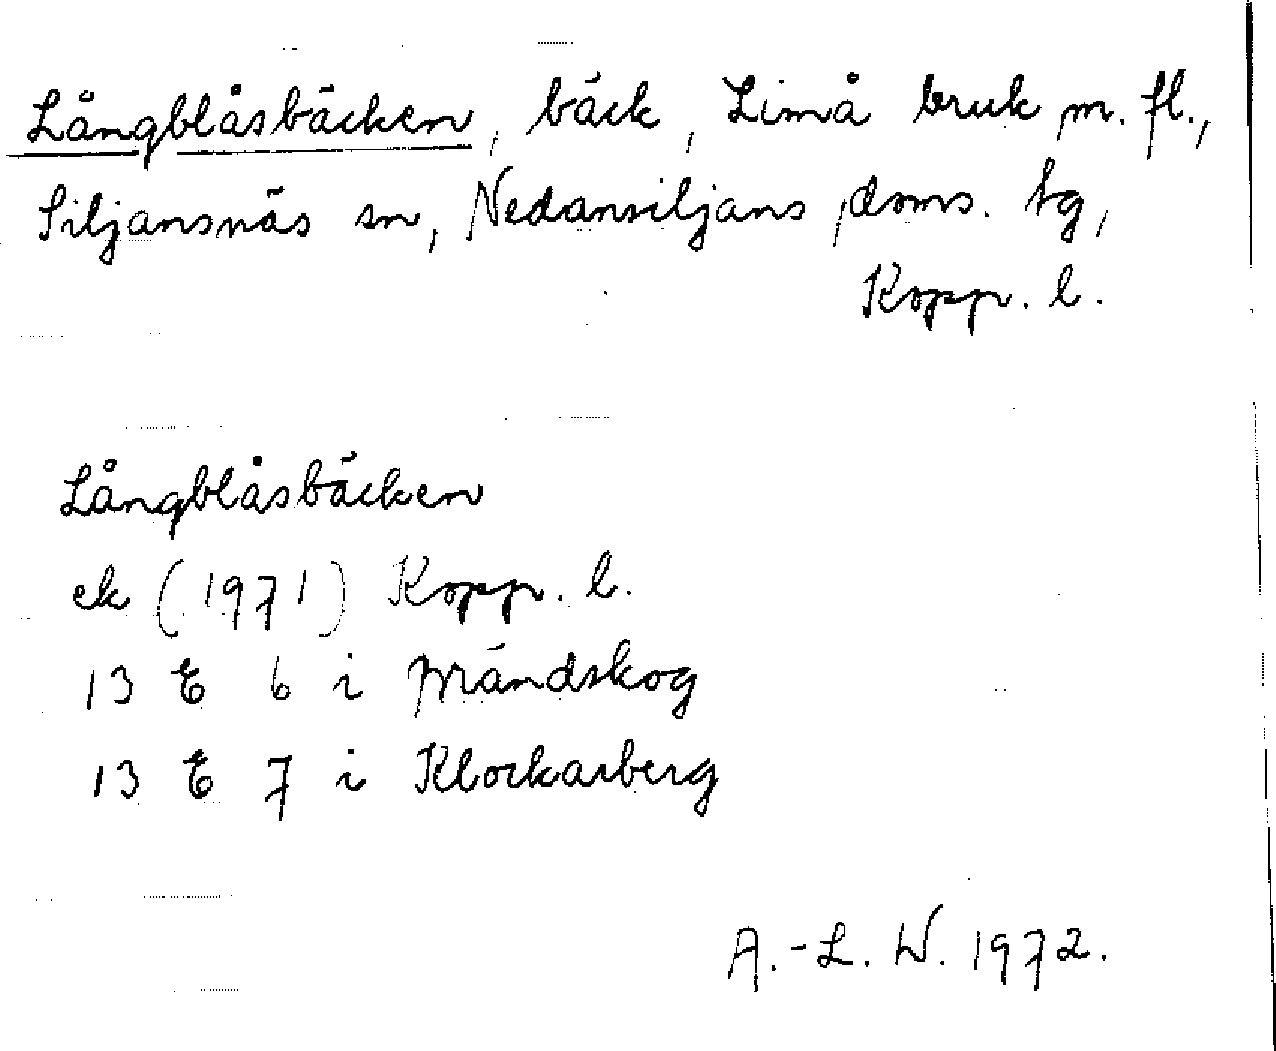 Långblåsbäcken, bäck, Limå bruk m. fl.,
Siljansnäs sn, Nedansiljans doms. tg,
Kopp. l.
Långblåsbäcken
ek (1971) Kopp. l.
13 E 6 i Mråndskog
13 E 7 i Klockarberg
A.-L. W. 1972.